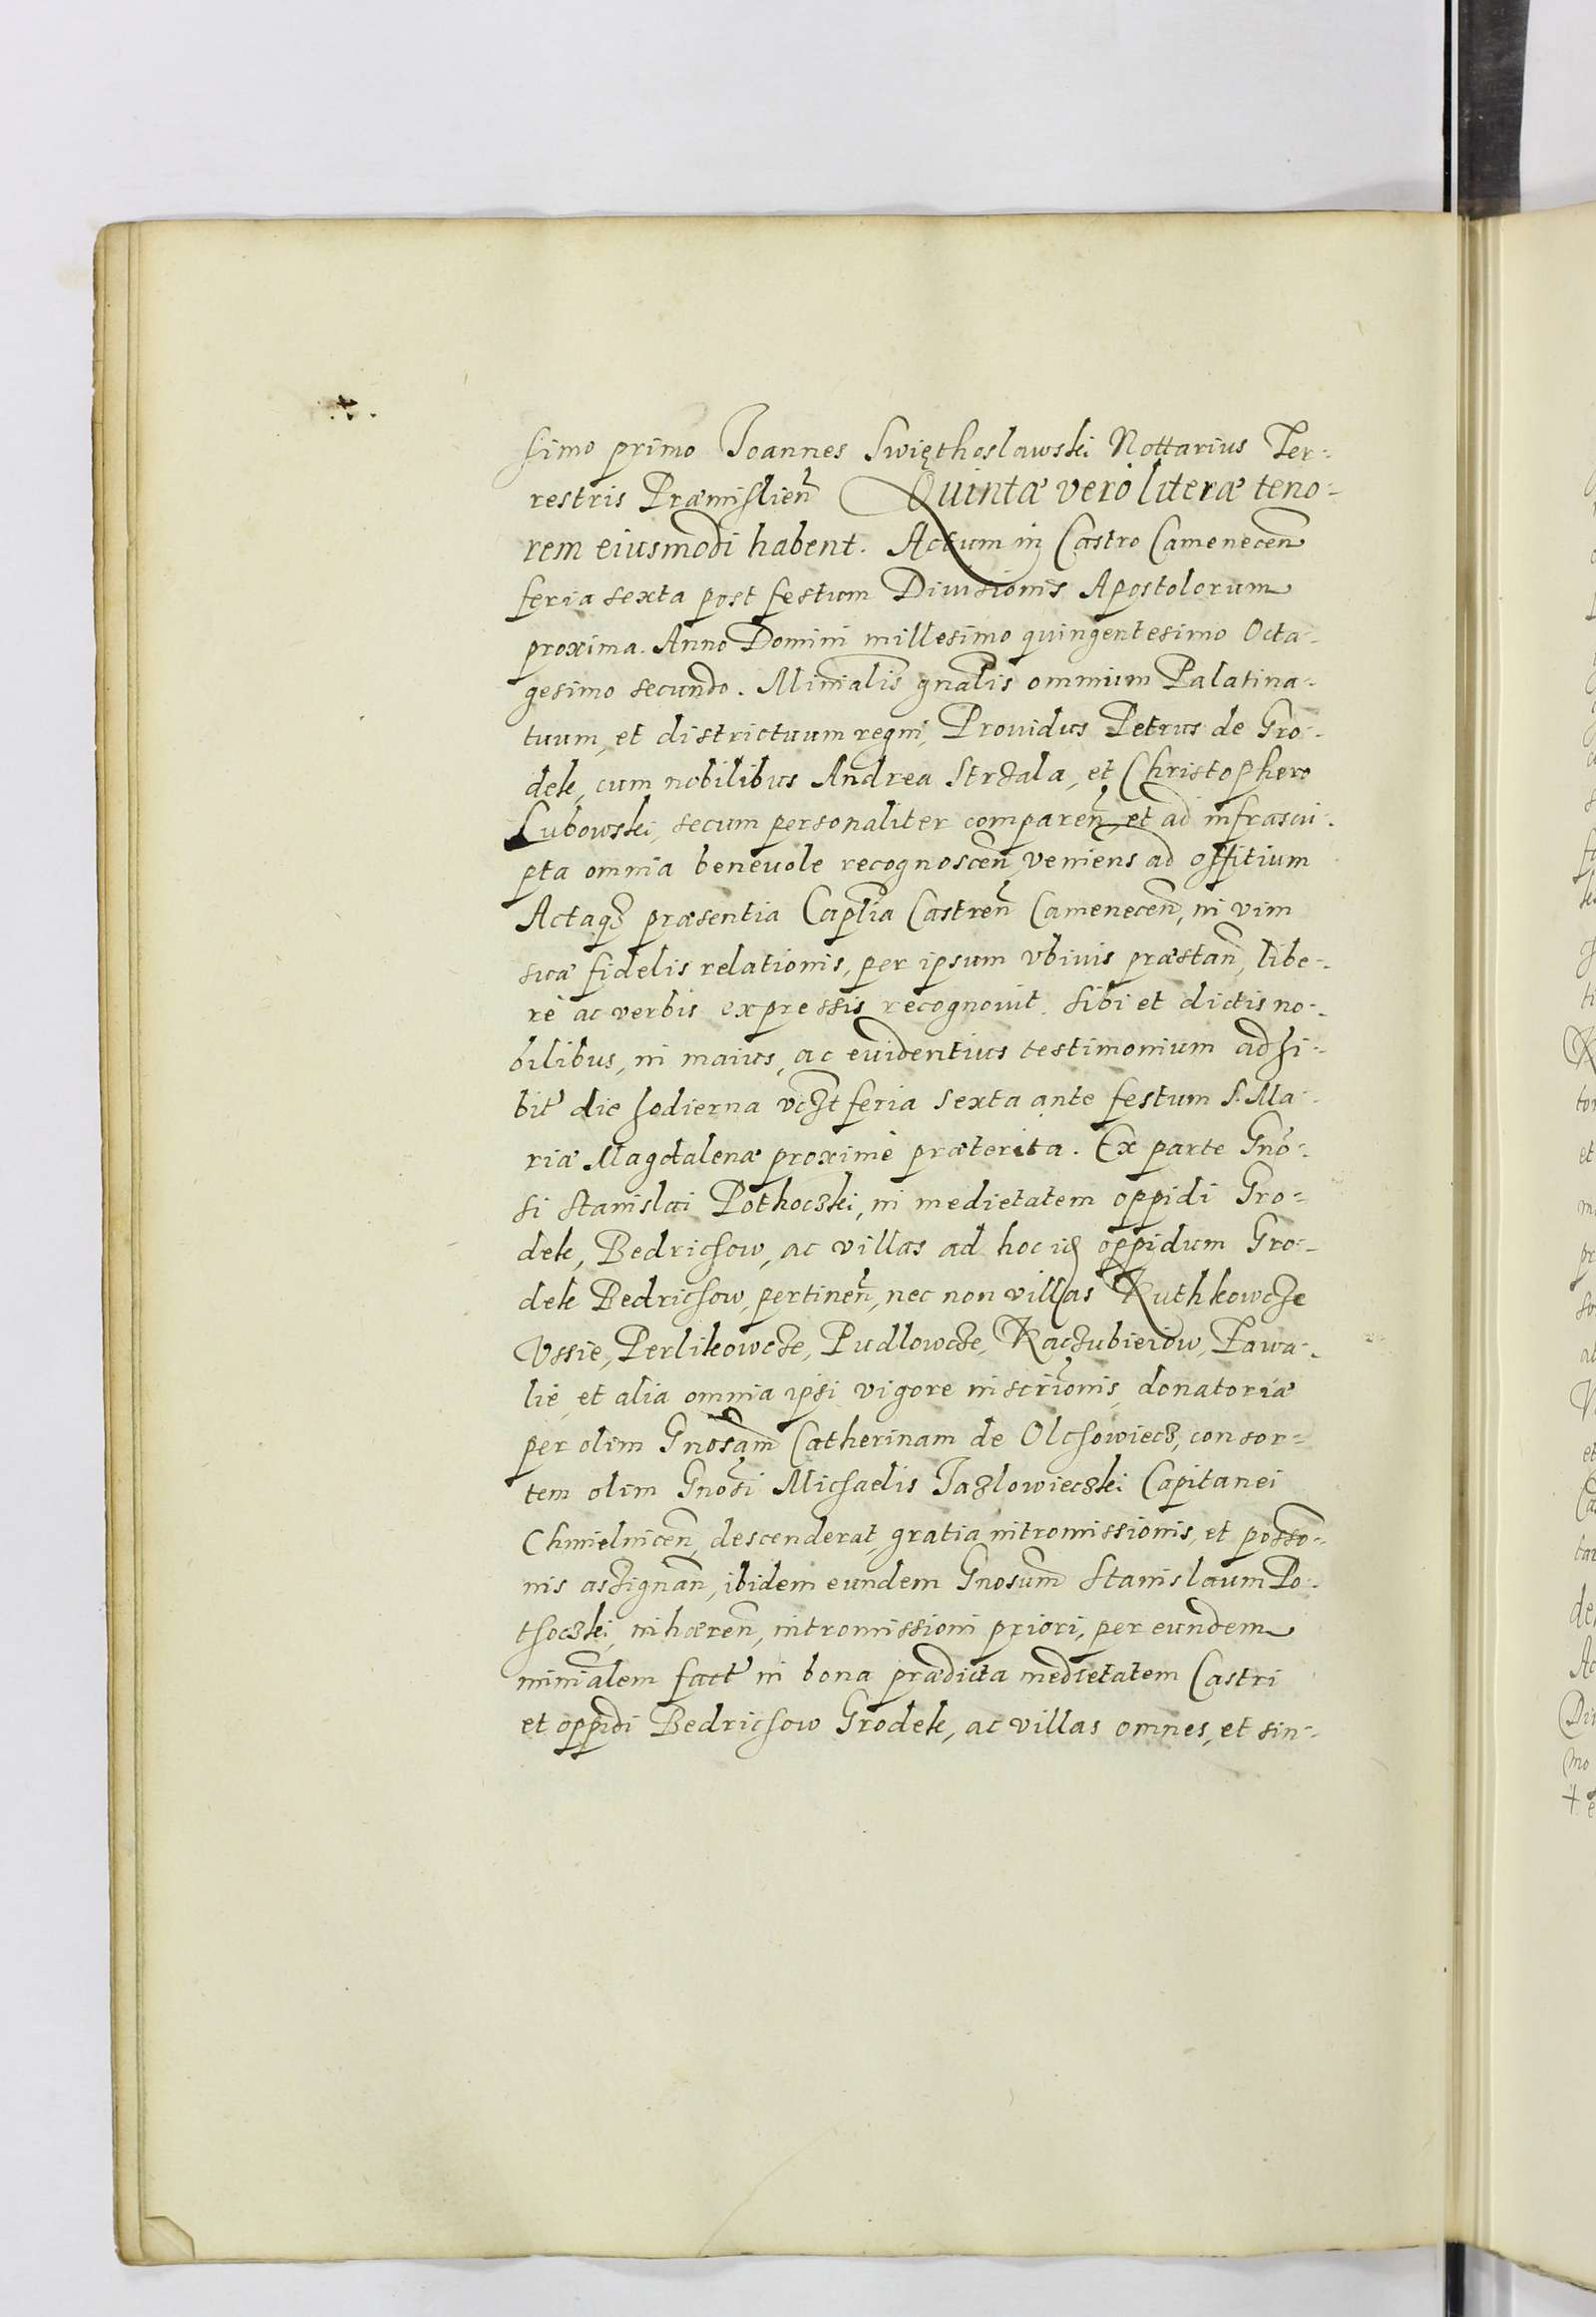 ssimo primo Joannes Swięthoslawski Nottarius Ter-
restris Præmislien Quintæ verò literæ teno-
rem eiusmodi habent. Actum in Castro Camenecen
feria sexta post festum Diuisionis Apostolorum
proxima. Anno Domini millesimo quingentesimo Octa-
gesimo secundo. Minialis gnalis omnium Palatina-
tuum, et districtuum regni, Prouidus Petrus de Gro-
dek, cum nobilibus Andrea Strzala, et Christophero
Lubowski, secum personaliter comparen, et ad infrascri-
pta omnia beneuole recognoscen, veniens ad offitium
Actaq3 præsentia Captlia Castren Camenecen, in vim
suæ fidelis relationis, per ipsum vbiuis præstan, libe-
rè ac verbis expressis recognouit. Sibi et dictis no-
bilibus, in maius, ac euidentius testimonium adhi-
bit die hodierna vczt feria sexta ante festum S. Ma-
riæ Magdalenæ proximè præterita. Ex parte Gno-
si Stanislai Pothoczki, in medietatem oppidi Gro-
dek, Bedrichow, ac villas ad hoc id oppidum Gro-
dek Bedrichow, pertinen, nec non villas Ruthkowcze
Vssie, Perlikowcze, Pudlowcze, Raczubieiow, Zawa-
lie, et alia omnia ipsi vigore inscrionis, donatoriæ
per olim Gnosam Catherinam de Olchowiecz, consor-
tem olim Gnosi Michaelis Jazlowieczki Capitanei
Chmielnicen, descenderat, gratia intromissionis, et posso-
nis assignan, ibidem eundem Gnosum Stanislaum Po-
thoczki, inhæren, intromissioni priori, per eundem
minialem fact in bona prædicta medietatem Castri
et oppidi Bedrichow Grodek, ac villas omnes, et sin-